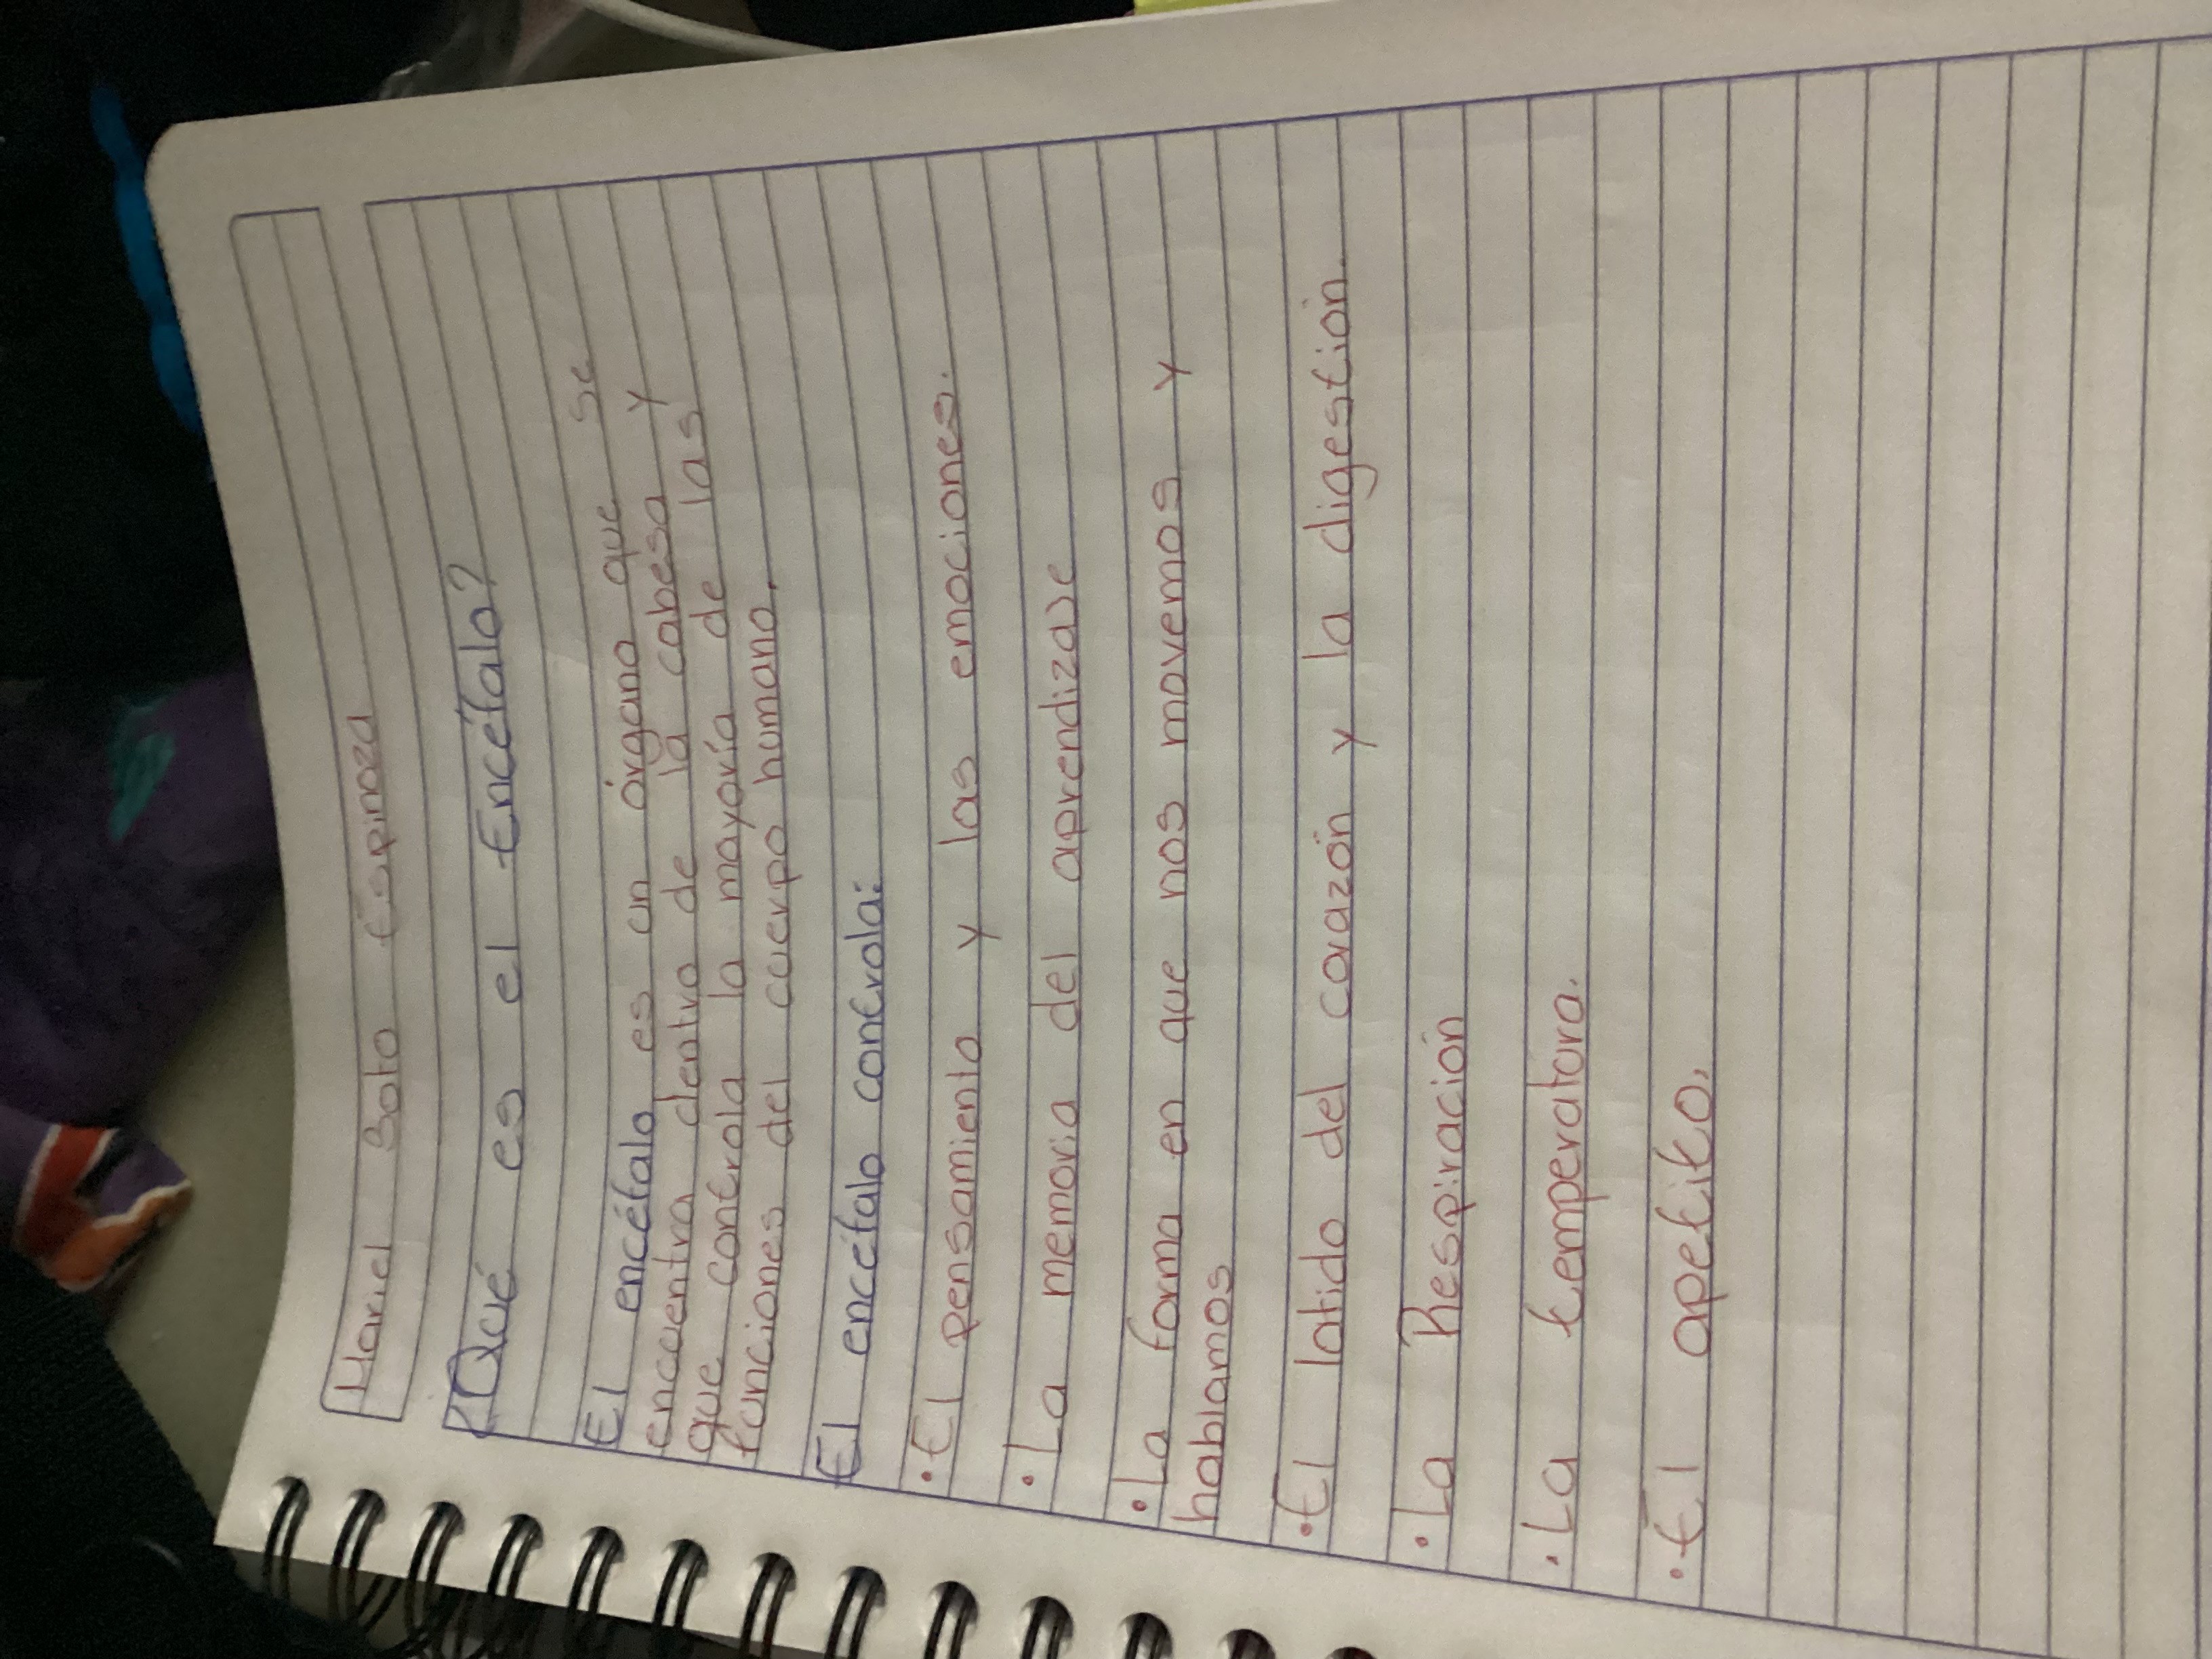 Mariel Soto Espinoza
¿Qué es el Encéfalo?
El encéfalo es un órgano que se
encuentra dentro de la cabesa y
que controla la mayoría de las
funciones del cuerpo humano.
El encéfalo controla:
• El pensamiento y las emociones.
• La memoria del aprendizaje
• La forma en que nos movemos y
hablamos
• El latido del corazón y la digestión.
• La Respiración
• La temperatura.
• El apetito.